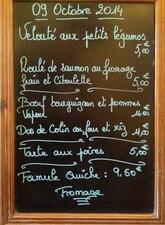 09 Octobre 2014
Velouté aux petits légumes
5,00€
Roulé de saumon au fromage
frais et Ciboulette
5,00€
Bœuf bourguignon et pommes
Vapeur
11,00€
Dos de Colin au feu et riz
11,00€
Tarte aux poires
5,00€
Formule Quiche : 9,50€
Fromage